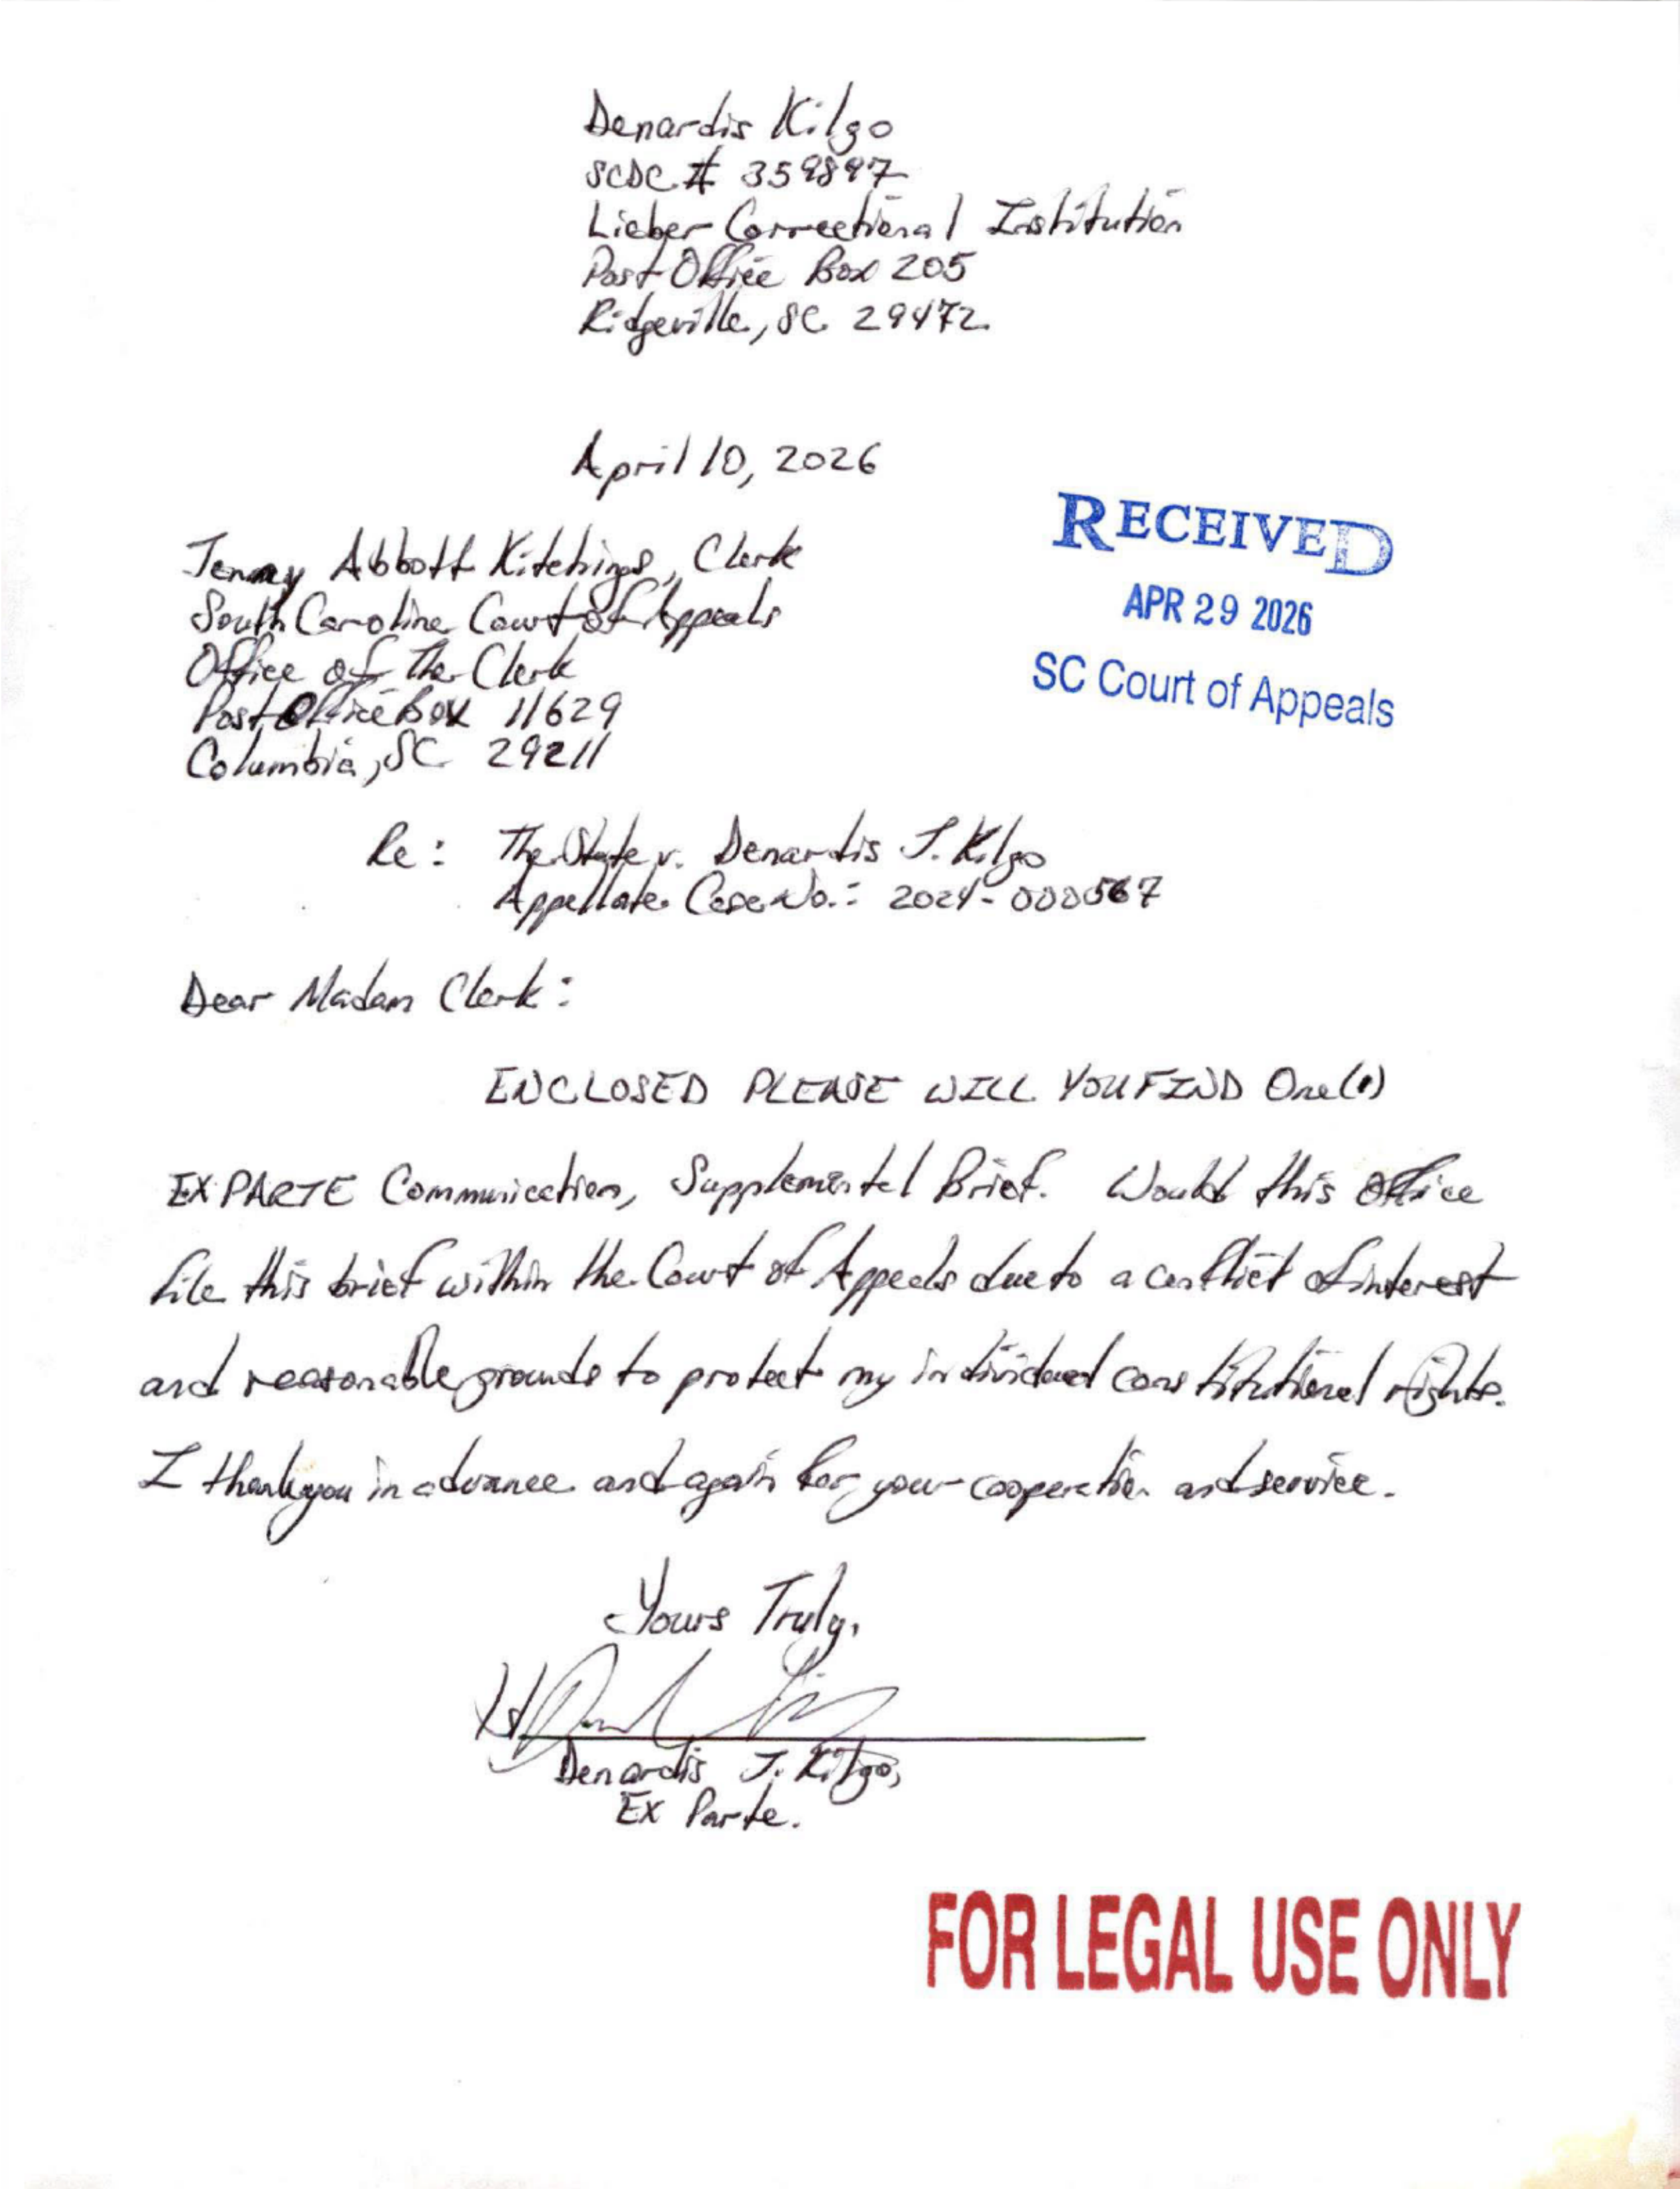 Denardis Kilgo
SCDC # 359897
Lieber Correctional Institution
Post Office Box 205
Ridgeville, SC 29472
April 10, 2026
RECEIVED
APR 29 2026
SC Court of Appeals
Jenny Abbott Kitchings, Clerk
South Carolina Court of Appeals
Office of The Clerk
Post Office Box 11629
Columbia, SC 29211
Re: The State v. Denardis J. Kilgo
Appellate Case No.: 2024-000567
Dear Madam Clerk:
ENCLOSED PLEASE WILL YOU FIND One(1)
EX PARTE Communication, Supplemental Brief. Would this office
file this brief within the Court of Appeals due to a conflict of interest
and reasonable grounds to protect my individual constitutional rights.
I thank you in advance and again for your cooperation and service.
Yours Truly,
Denardis J. Kilgo,
Ex Parte.
FOR LEGAL USE ONLY